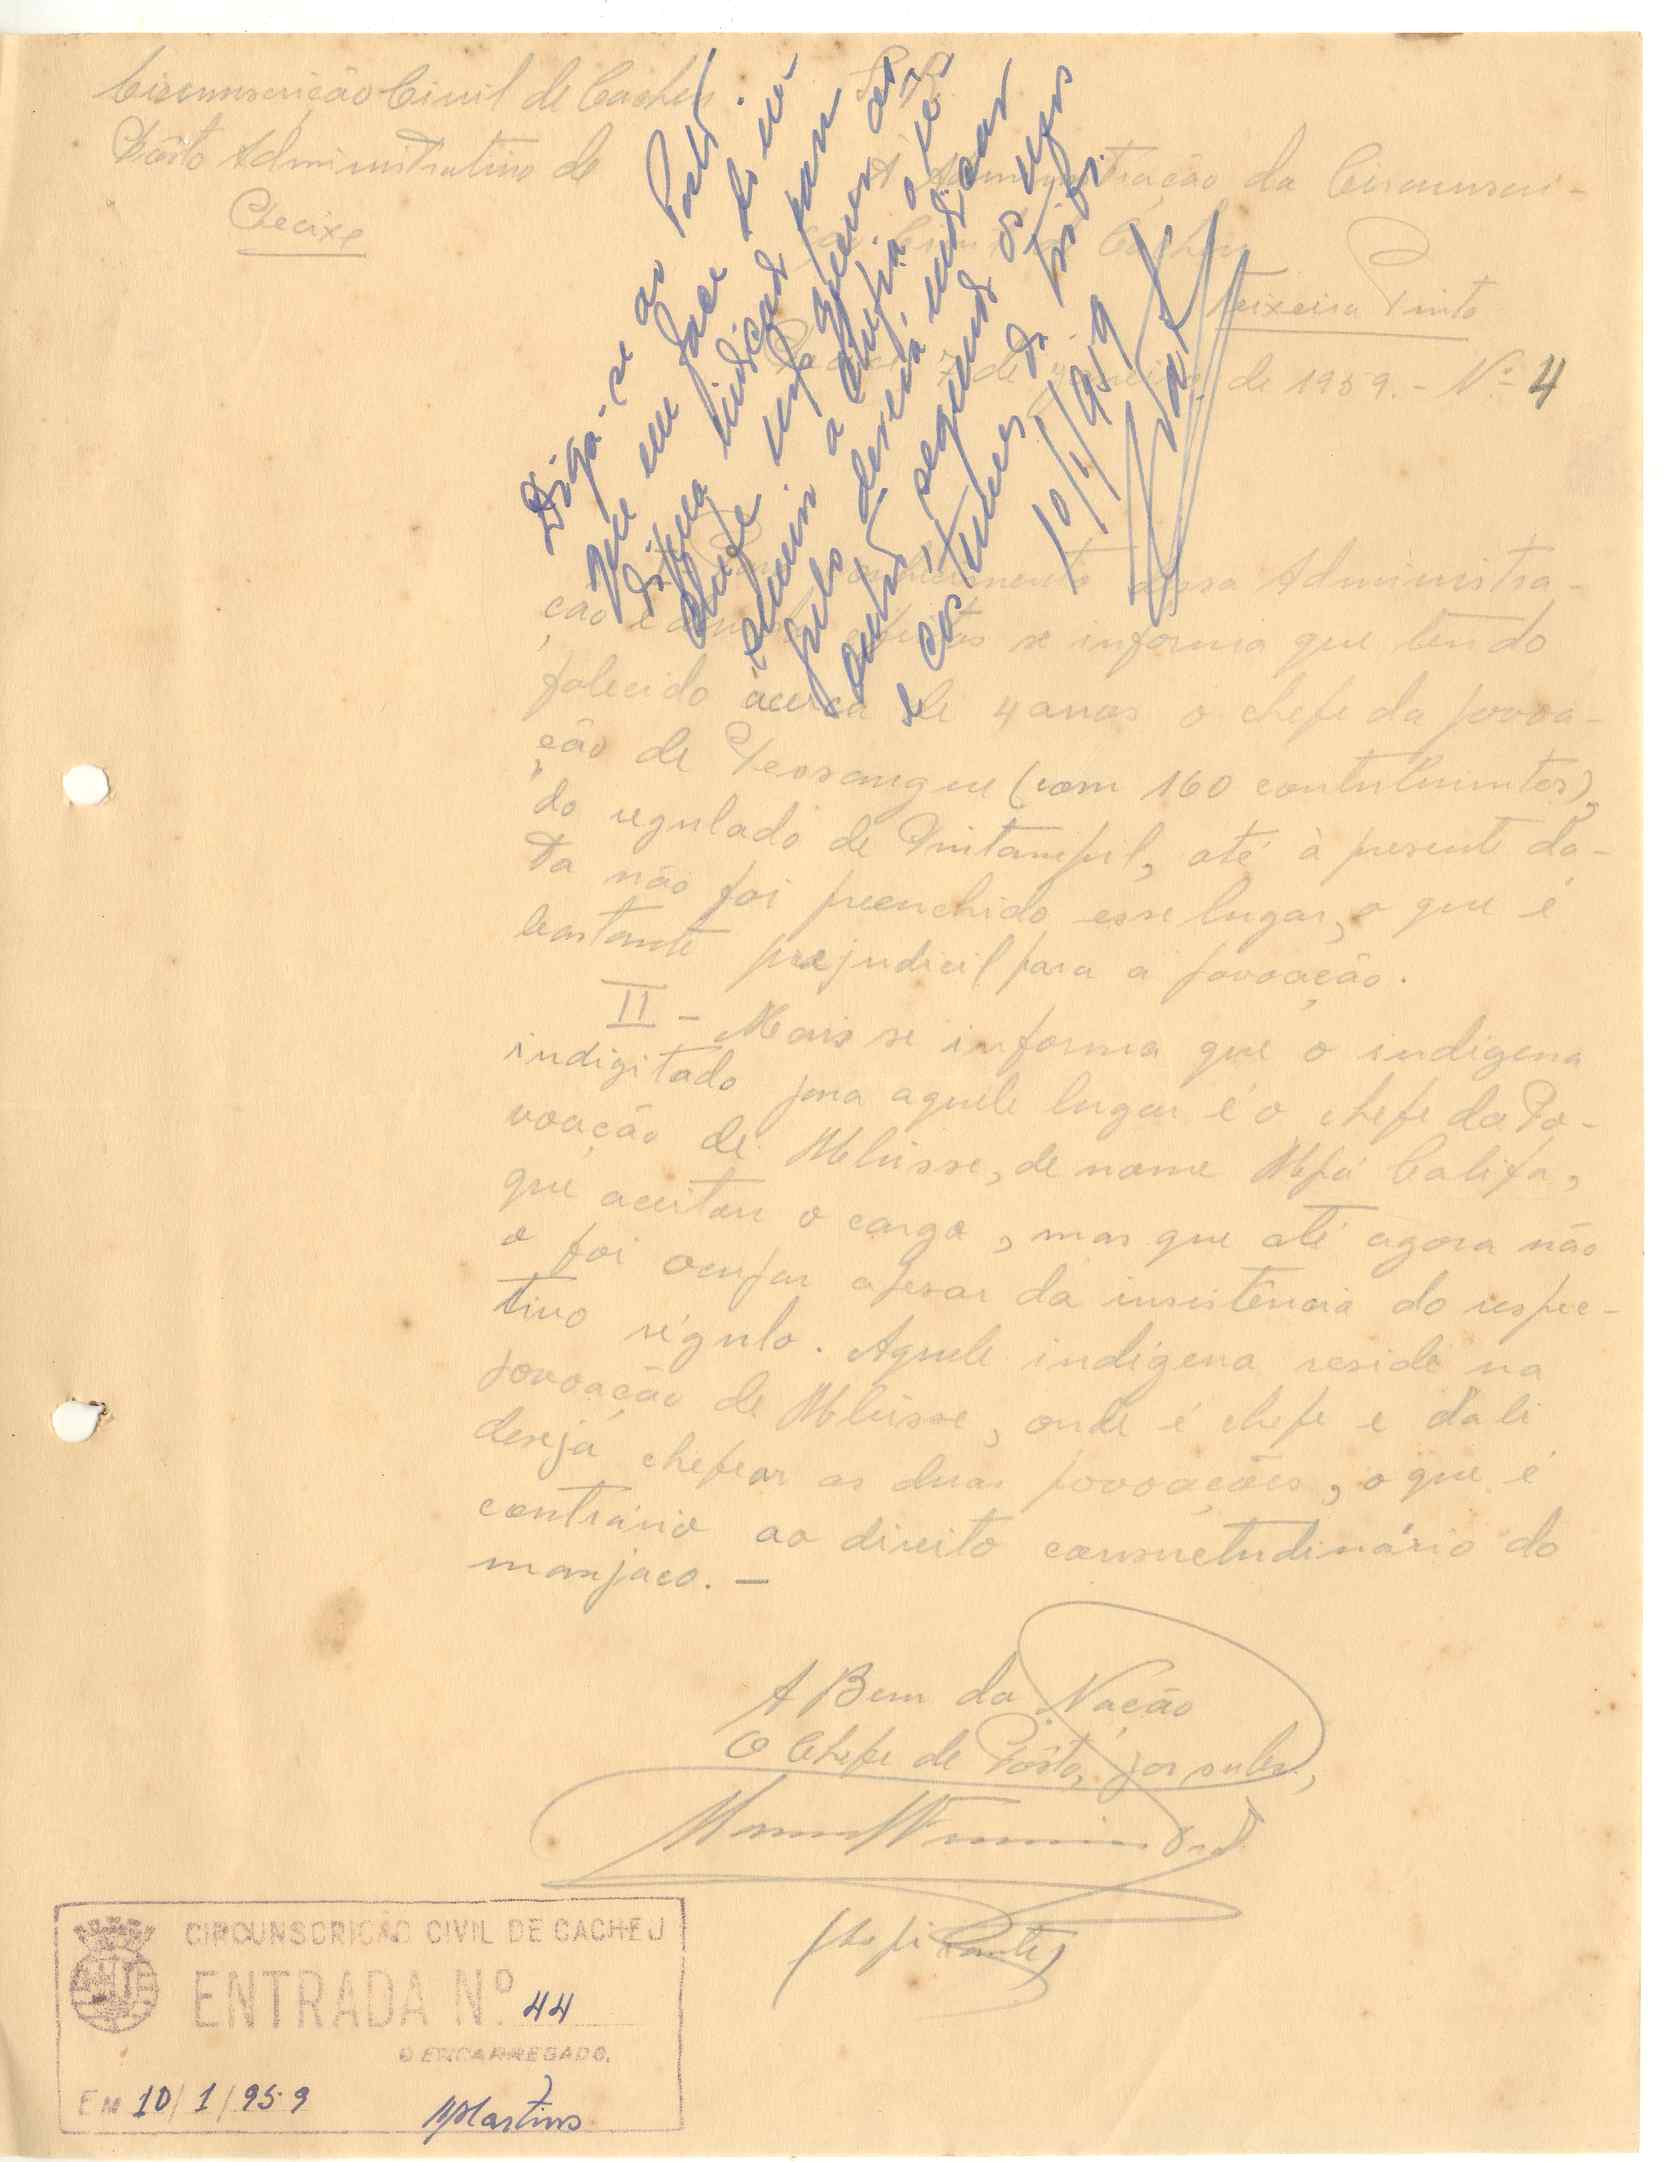 Circunscrição Civil de Cacheu
Pôsto Administrativo de
Checixe
S. R.
À Administração da Circunscri-
ção Civil de Cacheu
Teixeira Pinto
7 de Janeiro de 1959. - Nº 4
Diga-se ao Posto
que em face do in-
dígena indicado para
chefe não querer as-
sumir a chefia o ré-
gulo deverá indicar
outro, segundo os usos
e costumes da tribo.
10/1/959
Para conhecimento dessa Administra-
ção e efeitos se informa que tendo
falecido àcerca de 4 anos o chefe da povoa-
ção de Pessangue (com 160 contribuintes),
do regulado de Pintampil, até à presente da-
ta não foi preenchido esse lugar, o que é
bastante prejudicil para a povoação.
II - Mais se informa que o indígena
indigitado para aquele lugar é o chefe da Po-
voação de Mlusse, de nome Mpá Califa,
que aceitou o cargo, mas que até agora não
o foi ocupar apesar da insistência do respec-
tivo régulo. Aquele indígena reside na
povoação de Mlusse, onde é chefe e dali
deseja chefear as duas povoações, o que é
contrário ao direito consuetudinário do
manjaco. -
A Bem da Nação
O Chefe de Pôsto, por subs.,
CIRCUNSCRIÇÃO CIVIL DE CACHEU
ENTRADA Nº. 44
O ENCARREGADO,
EM 10/1/959
Martins